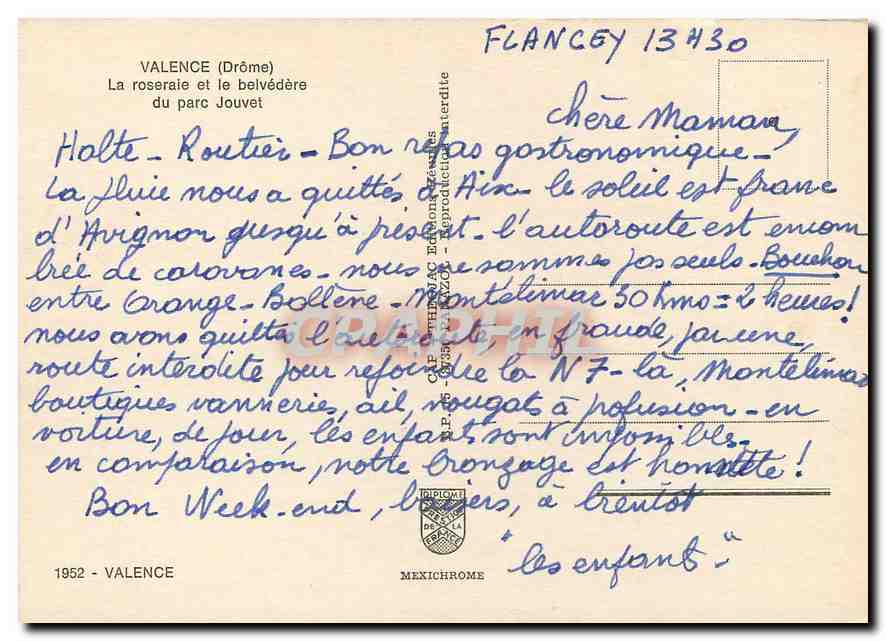 FLANCEY 13H30
VALENCE (Drôme)
La roseraie et le belvédère
du parc Jouvet
chère Maman,
Halte - Routier - Bon repas gastronomique -
La pluie nous a quittés à Aix - le soleil est franc
d'Avignon jusqu'à présent - l'autoroute est encom
brée de caravanes - nous ne sommes pas seuls - Bouchon
entre Orange - Bollène - Montélimar 30 kms = 2 heures!
nous avons quitté l'autoroute, en fraude, par une,
route interdite pour rejoindre la N7 - là, Montélimar
boutiques vanneries, ail, nougats à pofusion - en
voiture, de jour, les enfants sont impossibles -
en comparaison, notre bronzage est honnête!
Bon Week-end, baisers, à bientôt
"les enfants"
CAP - THEOJAC Editions
Reproduction interdite
DIPLOME
PRESTIGE
DE LA
FRANCE
1952 - VALENCE
MEXICHROME
CPAPHIL